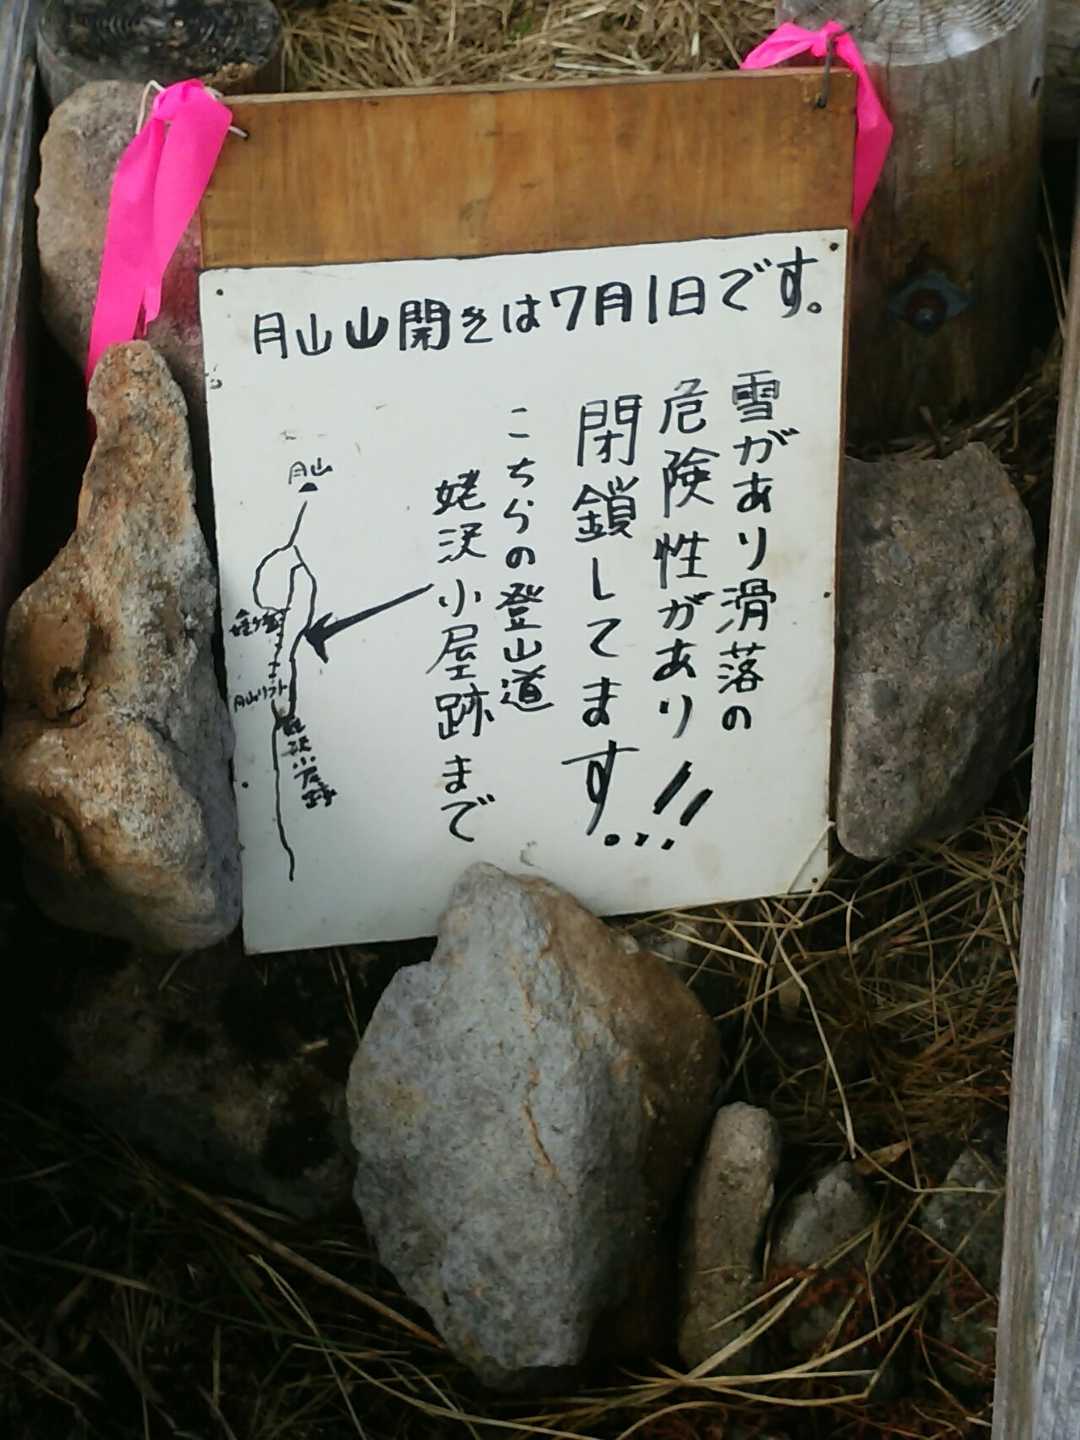 月山山開きは7月1日です。
雪があり滑落の
危険性があり!!
閉鎖してます...
こちらの登山道
姥沢小屋跡まで
月山
姥ヶ岳
月山リフト
姥沢小屋跡